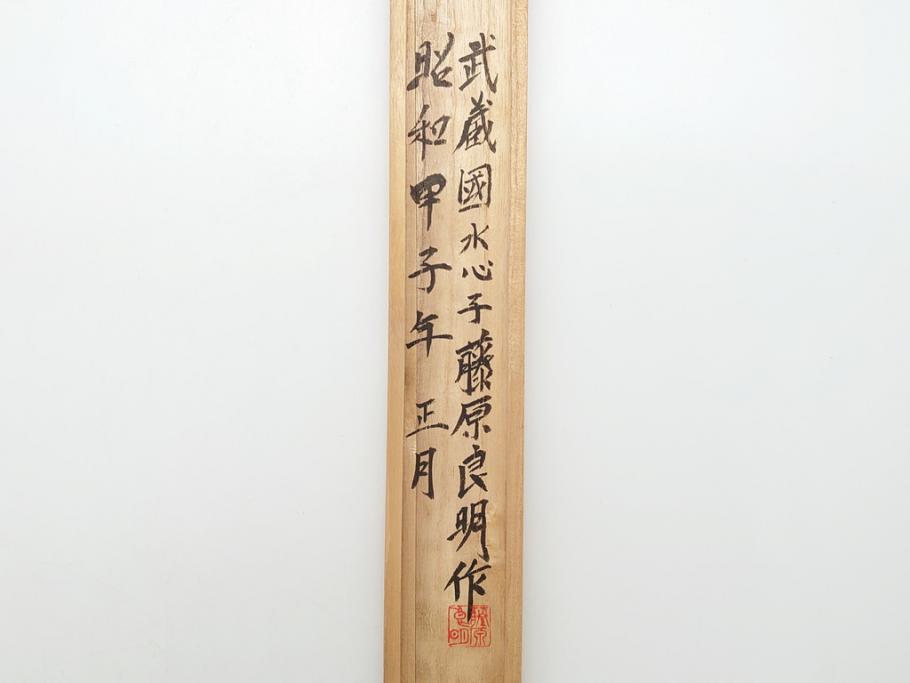 武蔵國水心子藤原良明作
昭和甲子年 正月
藤原
良明